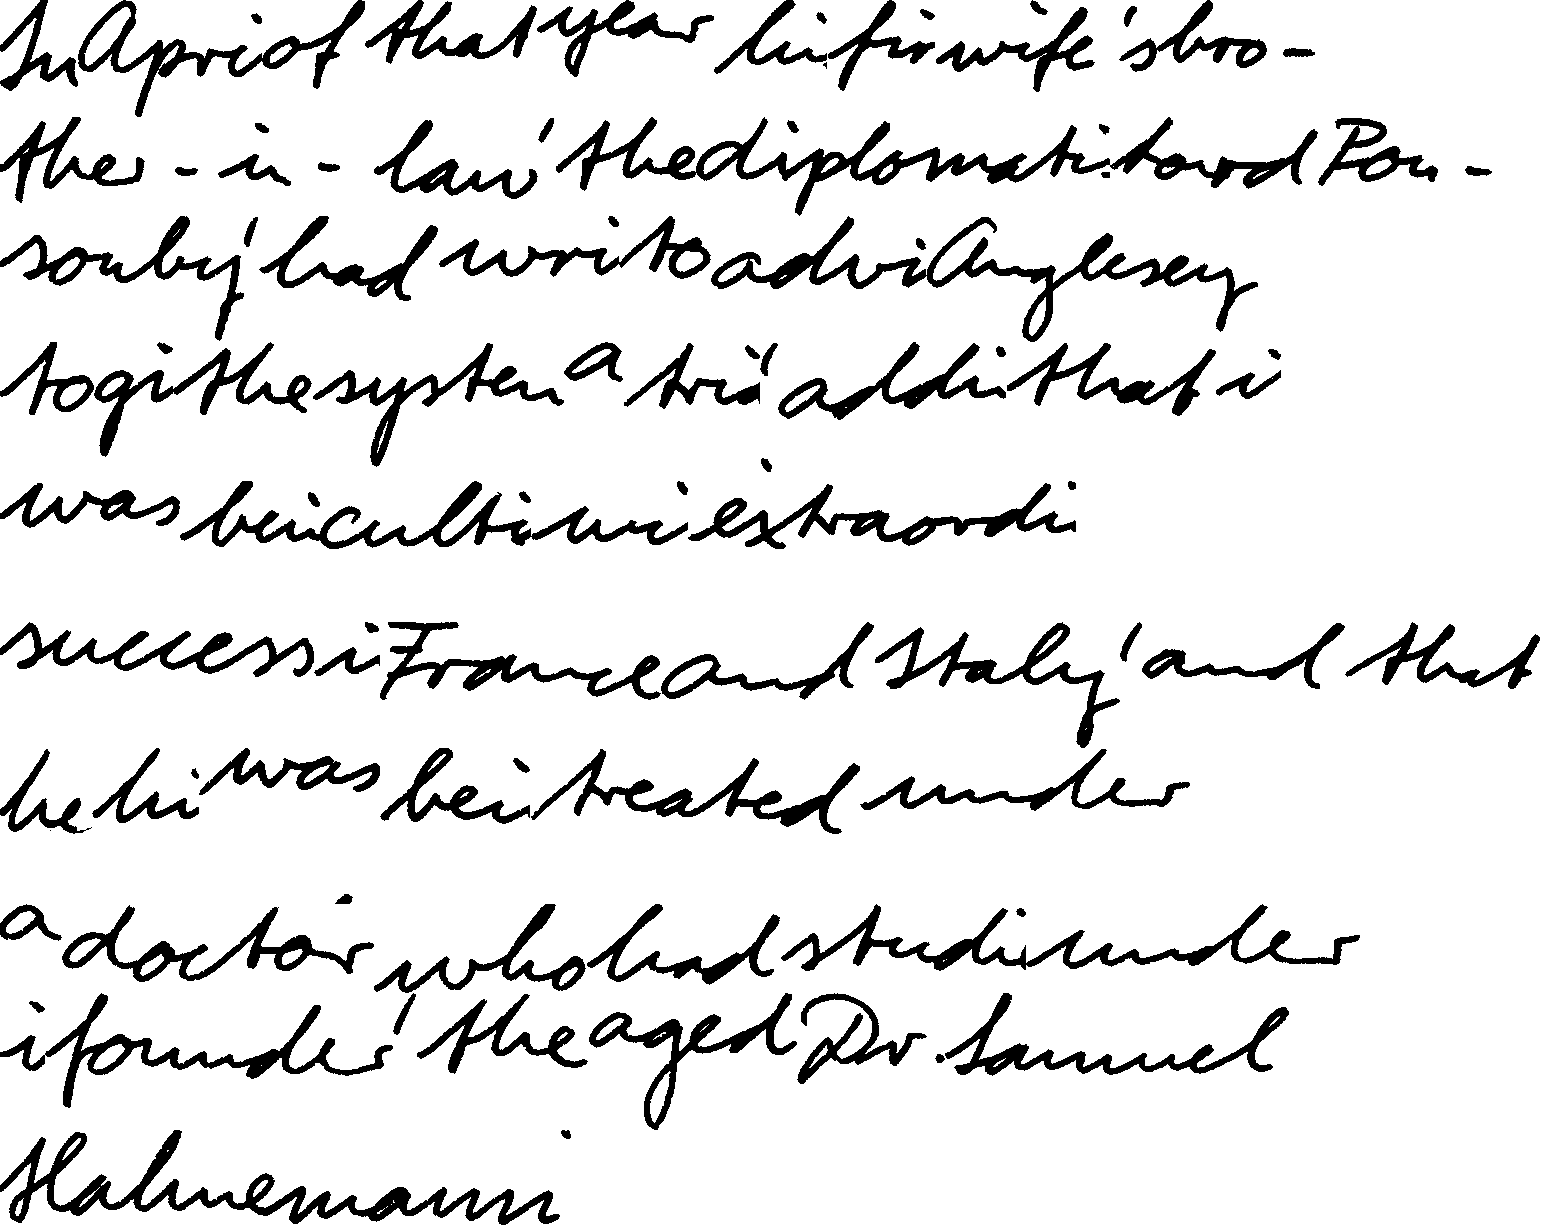 In Apri of that year hi fir wife's bro-
ther-in-law, the diplomati Lord Pon-
sonby, had writ to advi Anglesey
to gi the system a tri, addin that i
was bein culti wi extraordi
success i France and Italy, and that
he hi was bei treated under
a doctor who had studi under
i founder, the aged Dr. Samuel
Hahnemann.